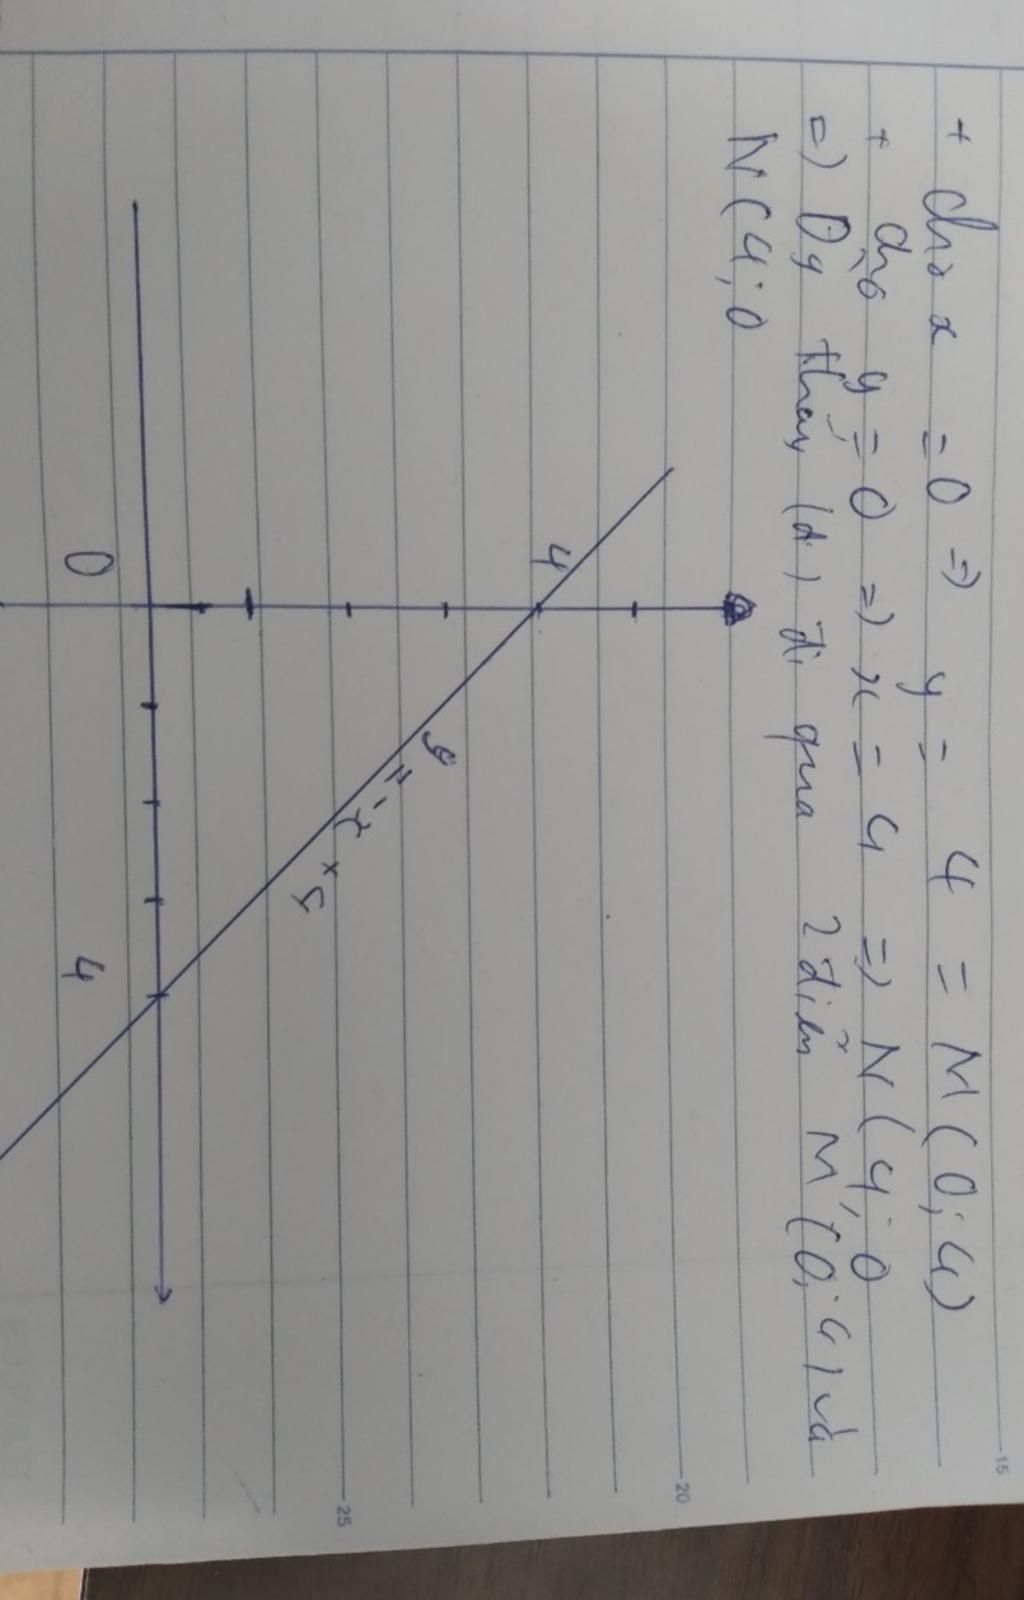 + cho x = 0 => y = 4 = M(0;4)
+ cho y = 0 => x = 4 => N(4;0
=> Đg thẳng (d) đi qua 2 điểm M(0;4) và
N(4;0
4
y = -x + 4
0
4
15
20
25